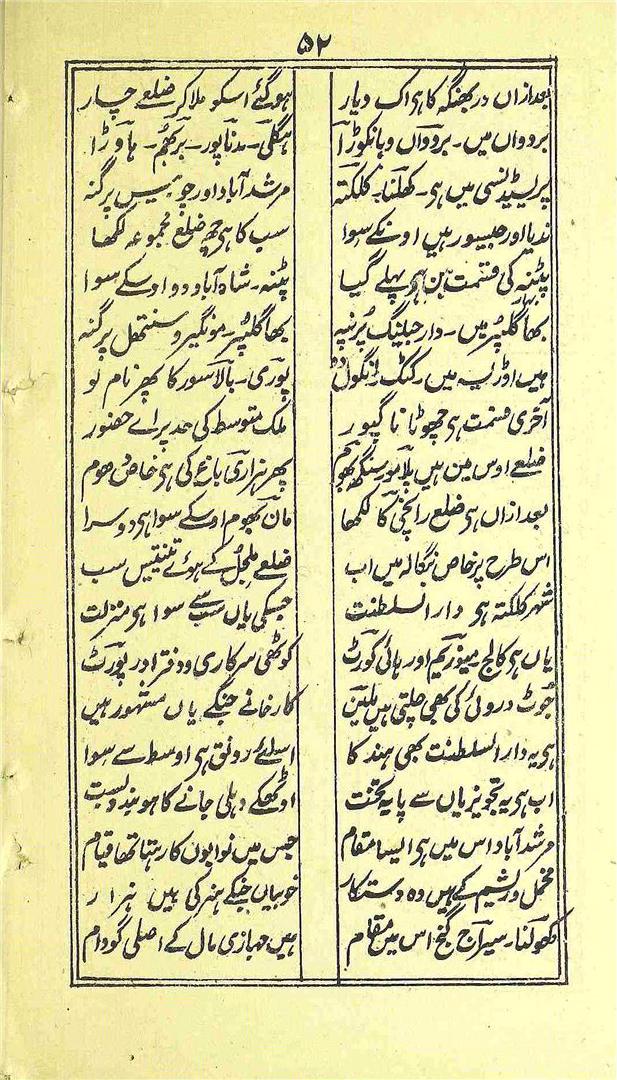 ۵۲
بعد ازاں دربھنگہ کا ہی اک دیار
ہو گئے اسکو ملا کر ضلعے چار
بردواں میں۔ بردواں و بانکوڑا
ہگلی۔ مدناپور۔ بربھم۔ ہاوڑا
پریسیڈنسی میں ہی۔ کھلنا۔ کلکتہ
مرشدآباد اور چوبیس پرگنہ
ندیا اور جیسور ہیں اونکے سوا
سب کا ہی چھ ضلع مجموعہ لکھا
پٹنہ کی قسمت میں ہی پہلے گیا
پٹنہ۔ شاہ آباد دو اوسکے سوا
بھاگلپور میں۔ دارجیلنگ پُرنیہ
بھاگلپور۔ مونگیر و سنتھل پرگنہ
ہیں اوڑیسہ میں۔ کٹک انگول دو
پوری۔ بالاسور کا پھر نام لو
آخری قسمت ہی چھوٹا ناگپور
ملک متوسط کی حد پر اے حضور
ضلعے اوس میں ہیں پلامو سنگھ بھوم
پھر ہزاری باغ کی ہی خاص دھوم
بعد ازاں ہی ضلع رانچی کا لکھا
مان بھوم اوسکے سوا ہی دوسرا
اس طرح پر خاص بنگالہ میں اب
ضلعے ملجل کے ہوئے تینتیس سب
شہر کلکتہ ہی دارالسلطنت
جسکی یاں سب سے سوا ہی منزلت
یاں ہی کالج میوزیم اور ہائی کورٹ
کوٹھی سرکاری و دفتر اور پورٹ
جوٹ و روئی کی بھی چلتی ہیں ملیں
کارخانے جنکے یاں مشہور ہیں
ہی یہ دارالسلطنت بھی ہند کا
اسلئے رونق ہی اوسط سے سوا
اب ہی یہ تجویز یاں سے پایہ تخت
اوٹھکے دہلی جانے کا ہو بندوبست
مرشدآباد اس میں ہی ایسا مقام
جس میں نوابوں کا رہتا تھا قیام
مخمل و ریشم کے ہیں وہ دستکار
خوبیاں جنکے ہنر کی ہیں ہزار
کھولنا۔ سیراج گنج اس میں مقام
ہیں جہازی مال کے اصلی گودام